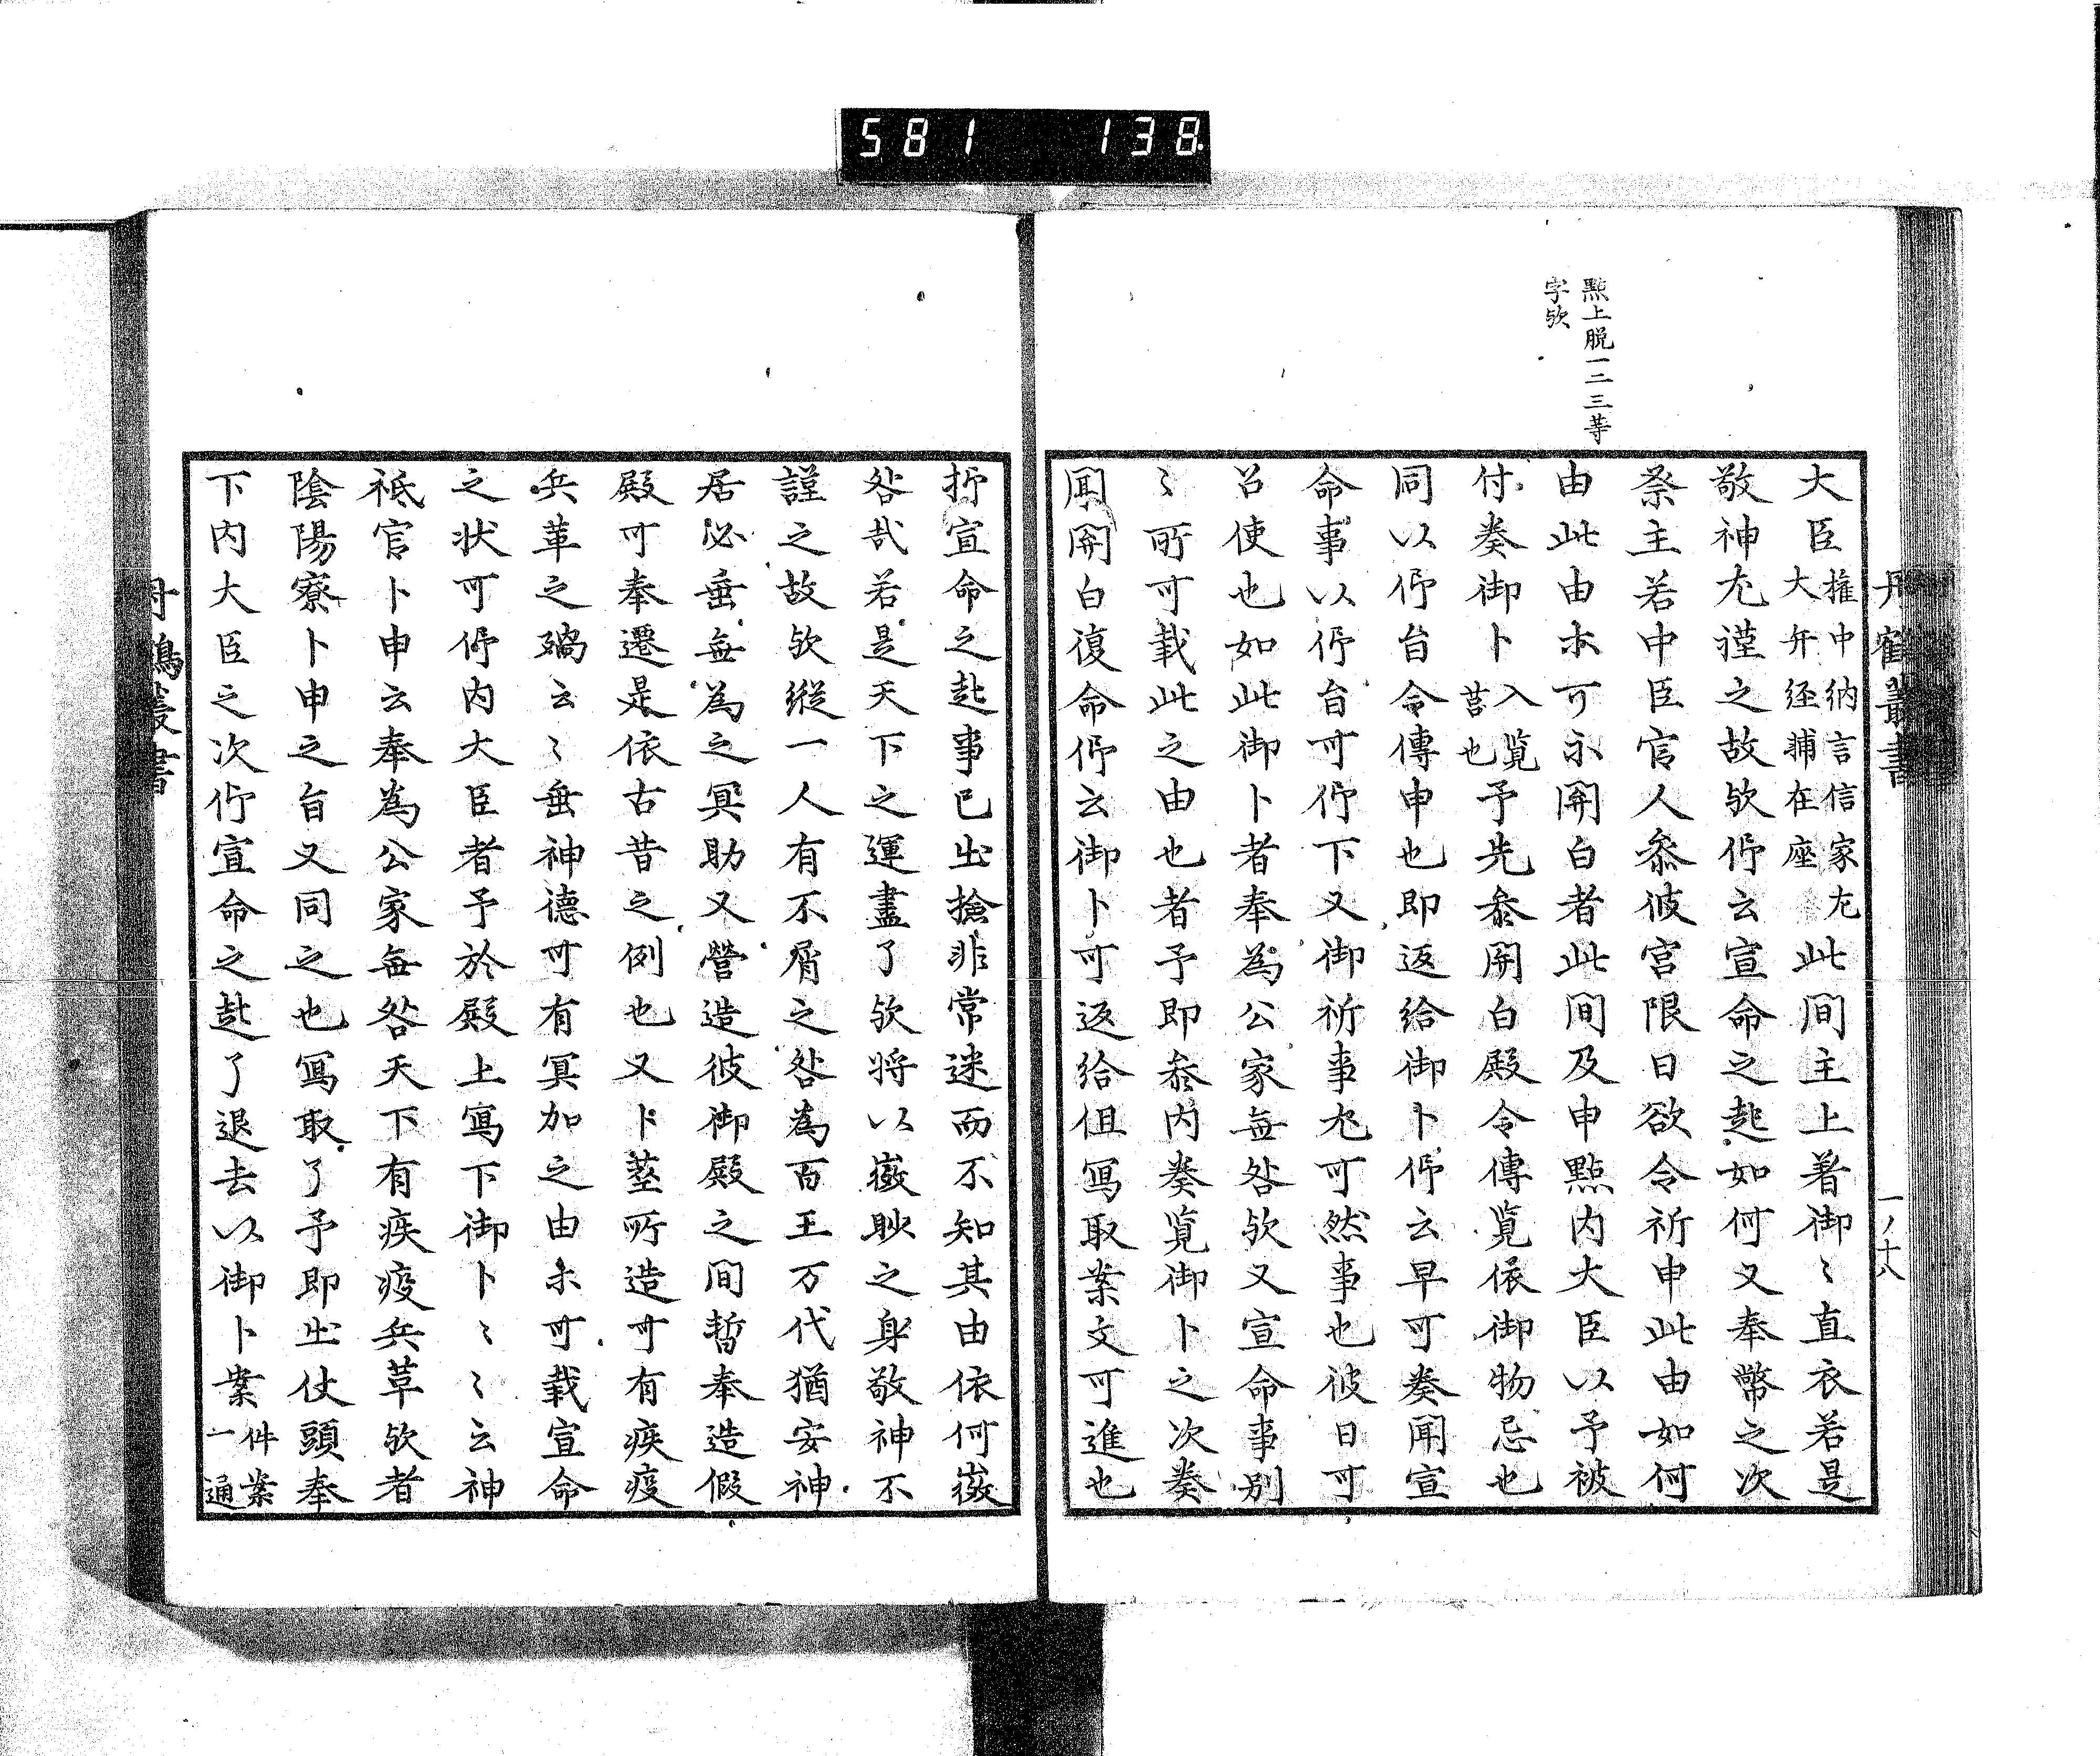 581 138
點上脱一二三等
字欤
丹鶴叢書
一ノ十八
大臣権中納言信家尤
大弁経輔在座此間主上著御〻直衣若是
敬神尤謹之故欤仰云宣命之趣如何又奉幣之次
祭主若中臣官人参彼宮限日欲令祈申此由如何
由此由尓可示関白者此間及申點内大臣以予被
付奏御卜入覧
莒也予先参関白殿令傳覧依御物忌也
同以仰旨令傳申也即返給御卜仰云早可奏聞宣
命事以仰旨可仰下又御祈事尤可然事也彼日可
召使也如此御卜者奉為公家無咎欤又宣命事別
〻所可載此之由也者予即参内奏覧御卜之次奏
聞関白復命仰云御卜可返給但寫取案文可進也
抑宣命之趣事已出撿非常迷而不知其由依何嶶
咎哉若是天下之運盡了欤将以嶶眇之身敬神不
謹之故欤縦一人有不屑之咎為百王万代猶安神
居必垂無為之冥助又營造彼御殿之間暫奉造假
殿可奉遷是依古昔之例也又卜莖所造可有疾疫
兵革之殃云〻垂神德可有冥加之由尓可載宣命
之状可仰内大臣者予於殿上寫下御卜〻〻云神
祇官卜申云奉為公家無咎天下有疾疫兵革欤者
陰陽寮卜申之旨又同之也寫取了予即出仗頭奉
下内大臣之次仰宣命之趣了退去以御卜案件案
一通
丹鶴叢書